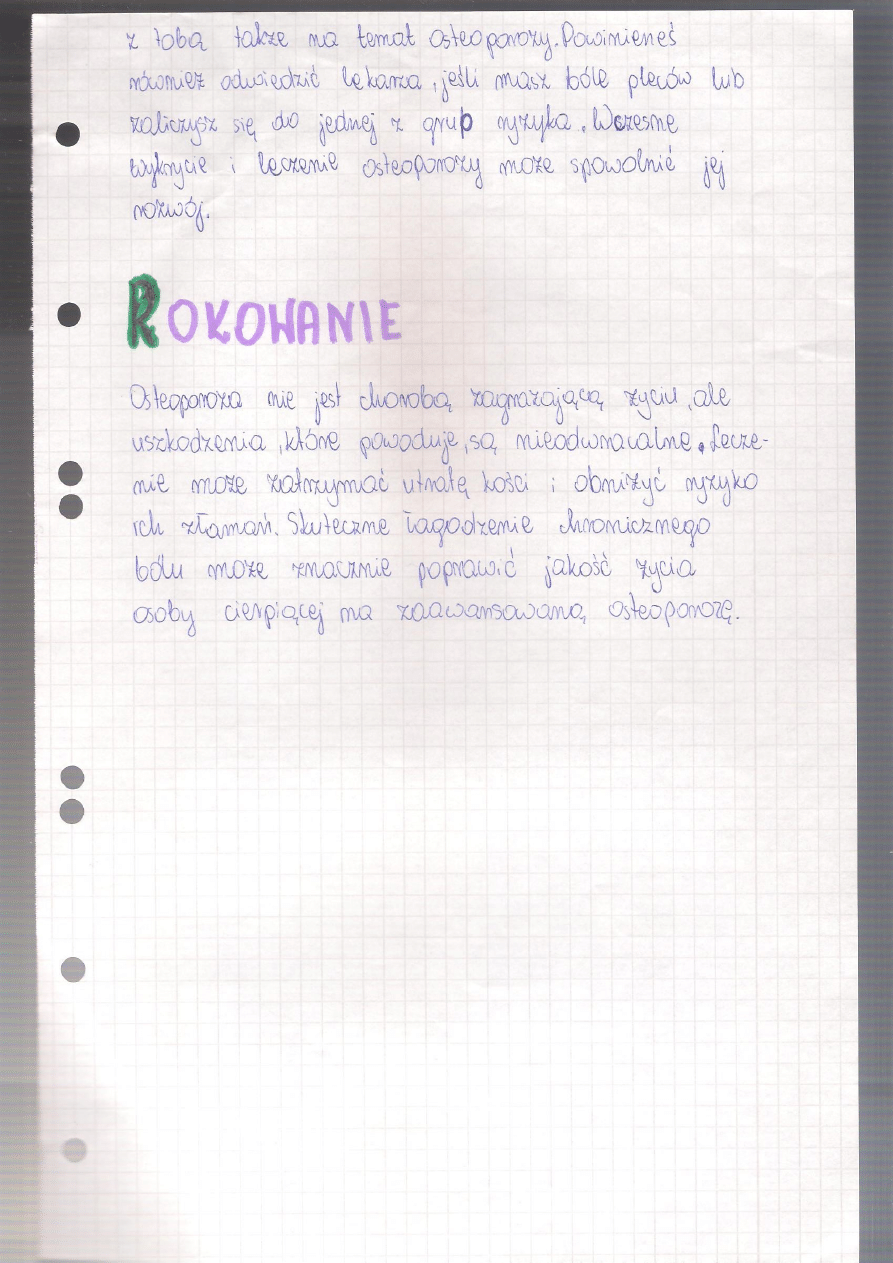 z tobą także na temat osteoporozy. Powinieneś
również odwiedzić lekarza, jeśli masz bóle pleców lub
zaliczysz się do jednej z grup ryzyka. Wczesne
wykrycie i leczenie osteoporozy może spowolnić jej
rozwój.
ROKOWANIE
Osteoporoza nie jest chorobą zagrażającą życiu, ale
uszkodzenia, które powoduje, są nieodwracalne. Lecze-
nie może zatrzymać utratę kości i obniżyć ryzyko
ich złamań. Skuteczne łagodzenie chronicznego
bólu może znacznie poprawić jakość życia
osoby cierpiącej na zaawansowaną osteoporozę.